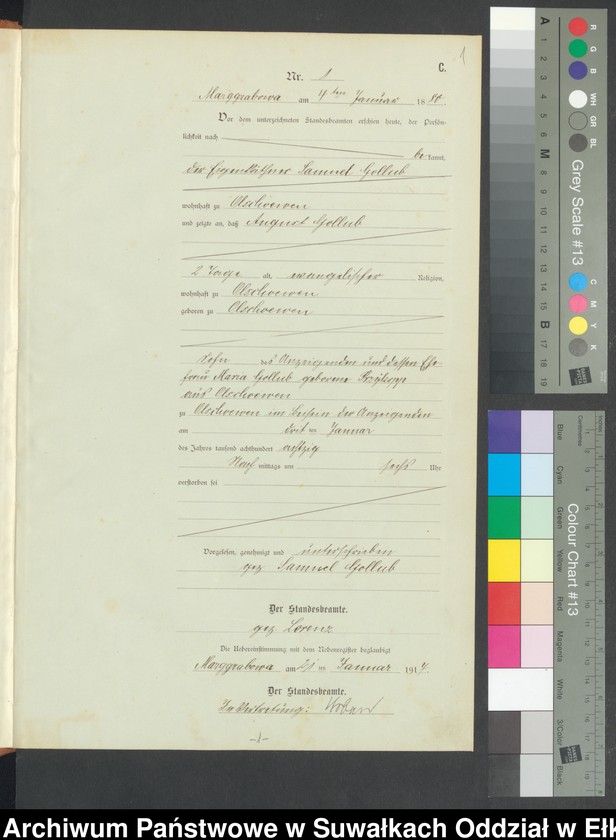 1
C.
Nr. 1
Marggrabowa am 4ten Januar 1880
Vor dem unterzeichneten Standesbeamten erschien heute, der Persön-
lichkeit nach
be kannt,
der Eigenkäthner Samuel Gollub
wohnhaft zu Olschoewen
und zeigte an, daß August Gollub
2 Tage alt, evangelischer Religion,
wohnhaft zu Olschoewen
geboren zu Olschoewen
Sohn des Anzeigenden und dessen Ehe-
frau Maria Gollub geborene
aus Olschoewen
zu Olschoewen im Beisein des Anzeigenden
am drit ten Januar
des Jahres tausend achthundert achtzig
Nach mittags um sechs Uhr
verstorben sei
Vorgelesen, genehmigt und unterschrieben
gez Samuel Gollub
Der Standesbeamte.
gez Lorenz
Die Uebereinstimmung mit dem Nebenregister beglaubigt
Marggrabowa am ten Januar 191
Der Standesbeamte.
In Vertretung:
-1-
R
G
B
WH
GR
BL
C
M
Y
K
A
1
2
3
4
5
6
M
8
9
10
11
12
13
14
15
B
17
18
19
Grey Scale #13
Blue
Cyan
Green
Yellow
Red
Magenta
White
3/Color
Black
Colour Chart #13
Centimetres
Inches
Archiwum Państwowe w Suwałkach Oddział w Ełk